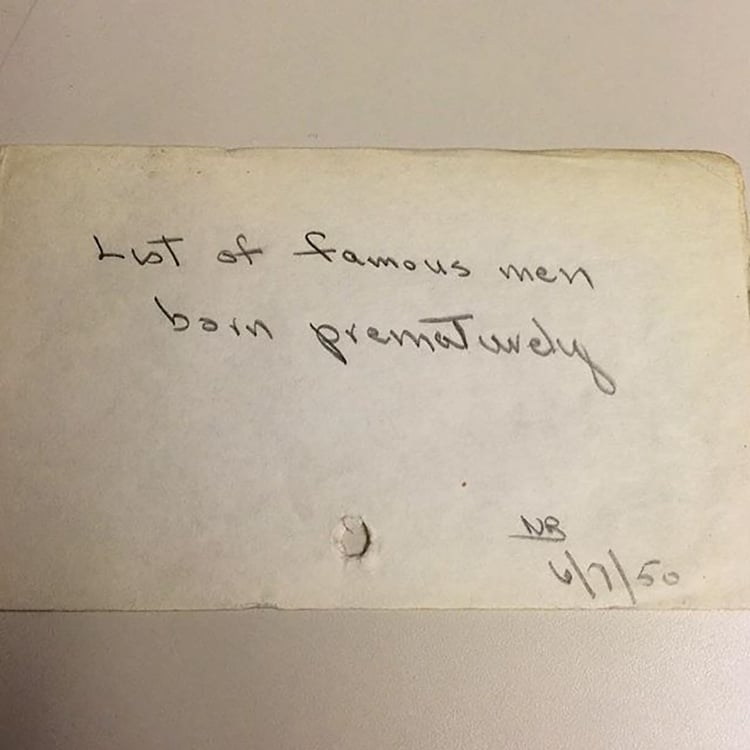 List of famous men
born prematurely
NR
6/7/50